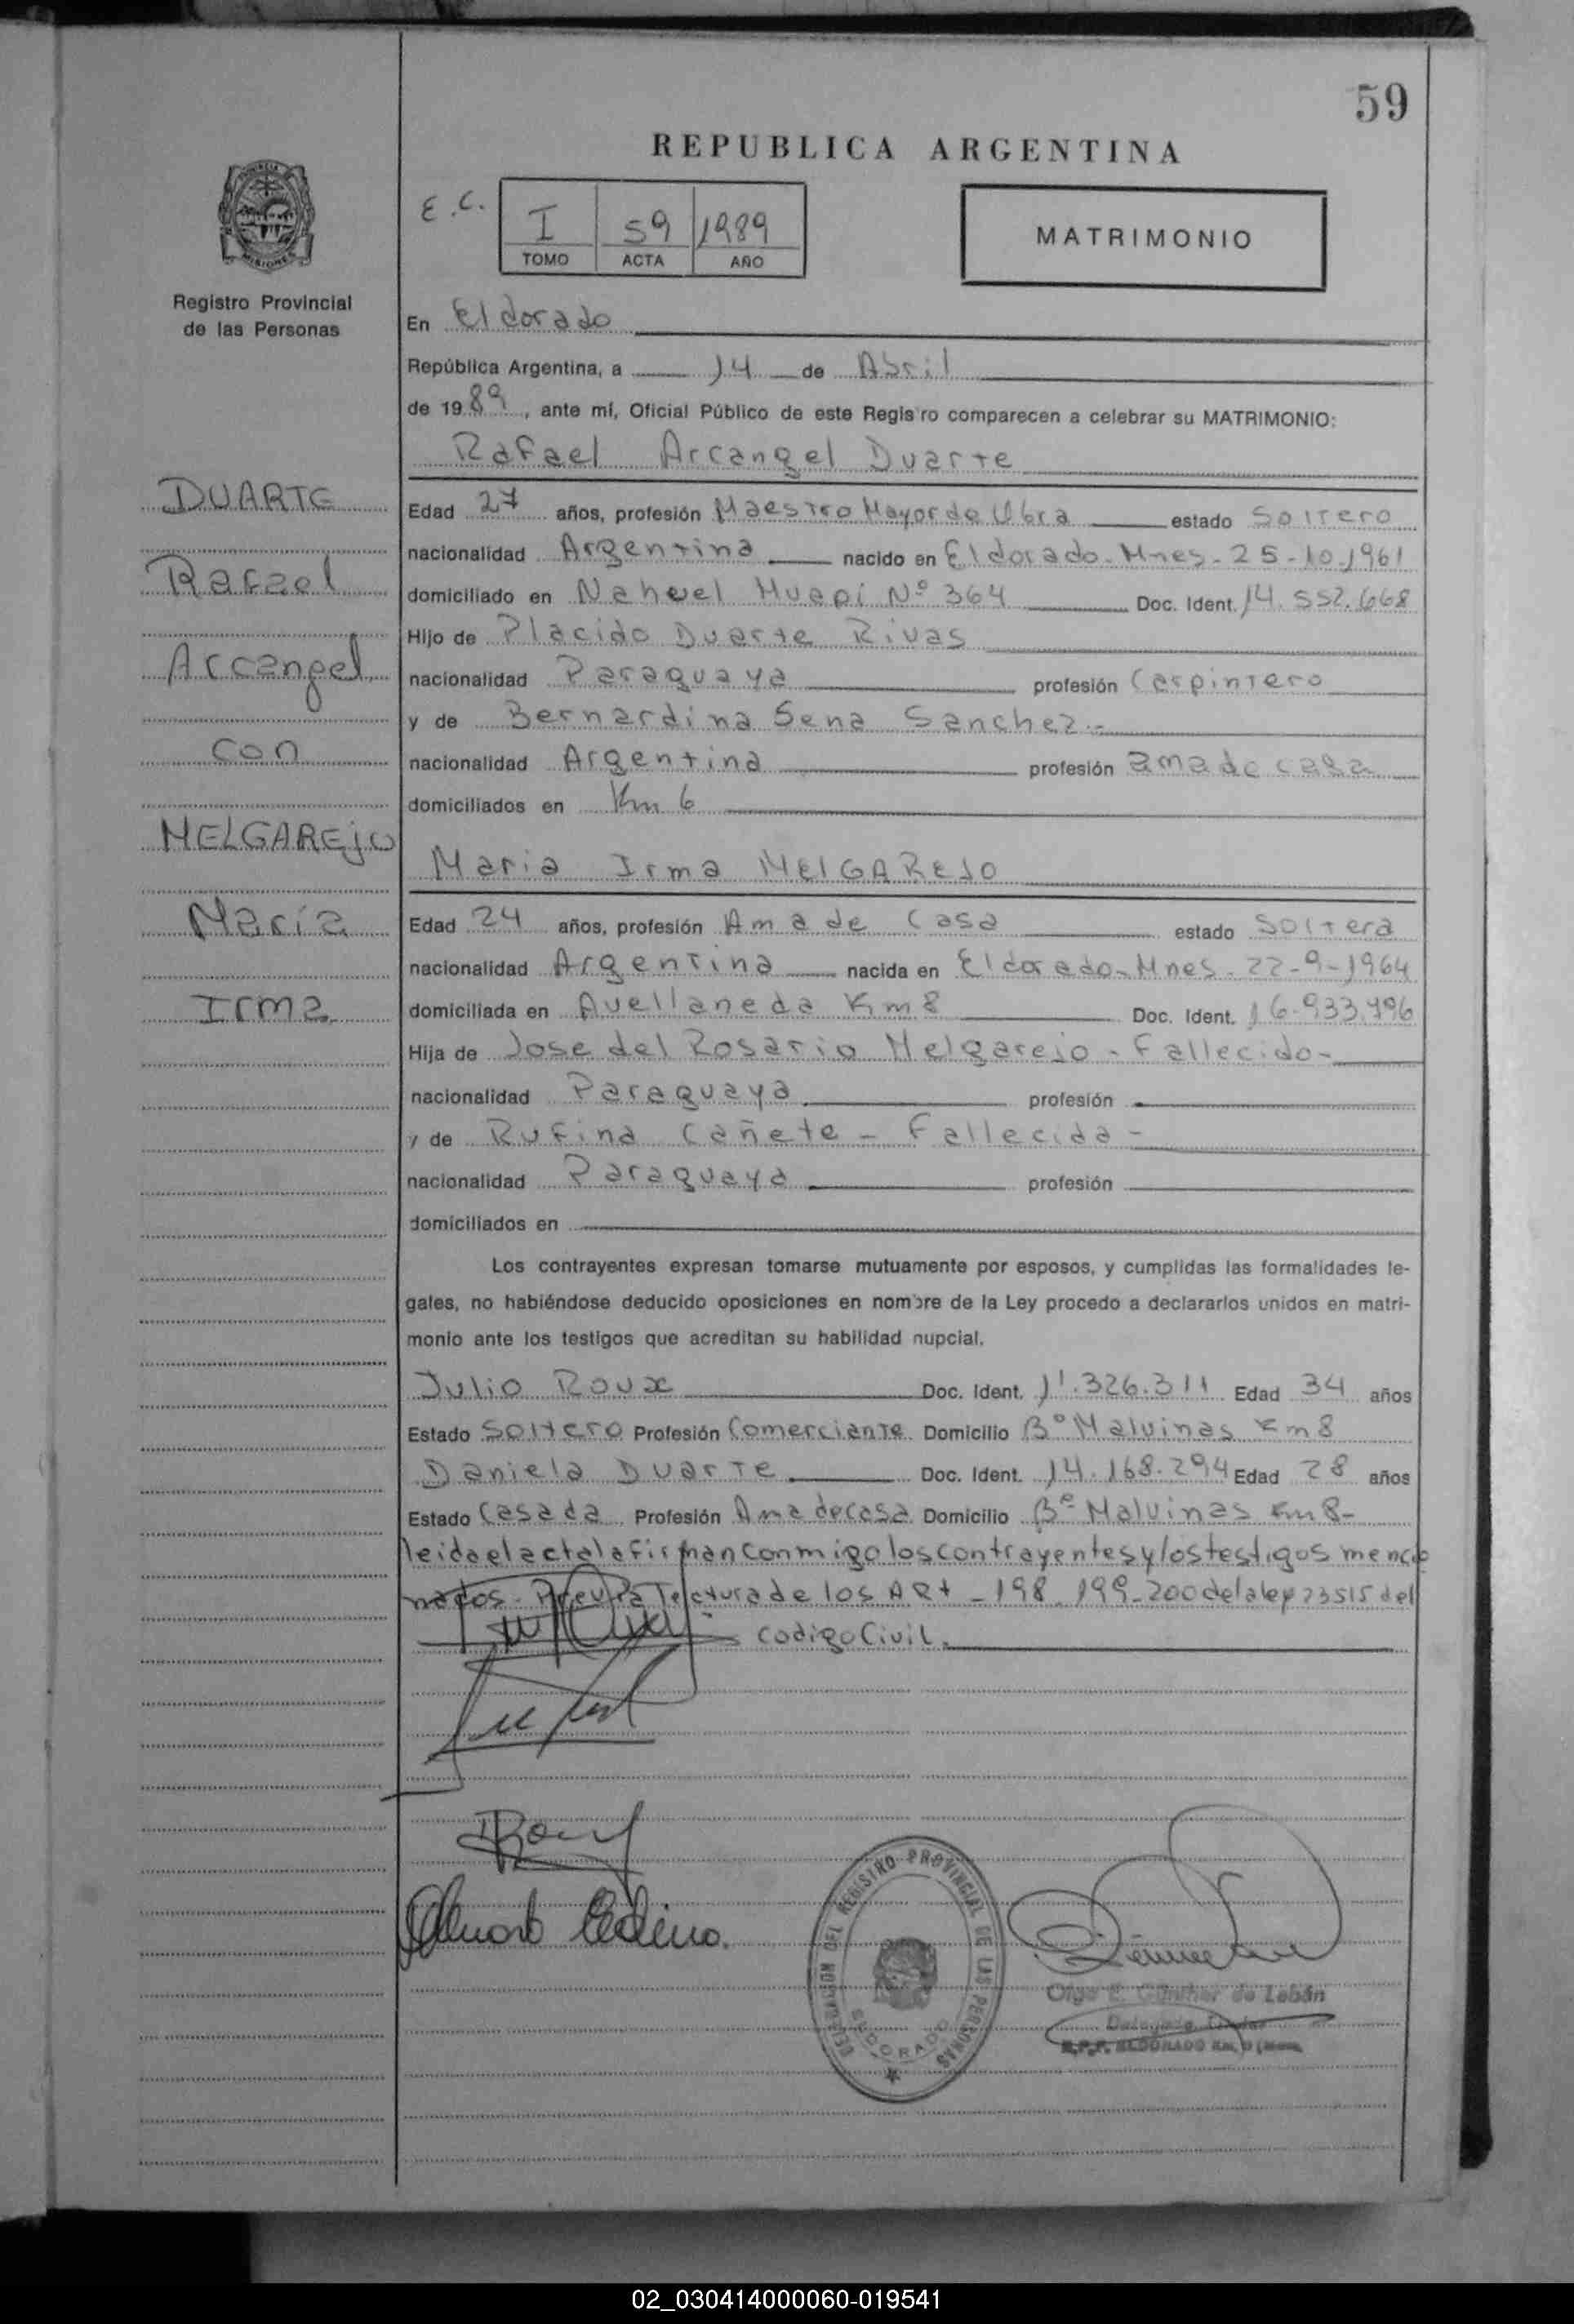 59
REPUBLICA ARGENTINA
E.C.
I 59 1989
TOMO ACTA AÑO
MATRIMONIO
PROVINCIA DE
MISIONES
Registro Provincial
de las Personas
DUARTE
Rafael
Arcangel
con
MELGAREjO
María
Irma
En Eldorado
República Argentina, a 14 de Abril
de 1989, ante mí, Oficial Público de este Regis ro comparecen a celebrar su MATRIMONIO:
Rafael Arcangel Duarte
Edad 27 años, profesión Maestro Mayor de Obra estado Soltero
nacionalidad Argentina nacido en Eldorado. Mnes - 25-10-1961
domiciliado en Nahuel Huapi Nº 364 Doc. Ident. 14.552.668
Hijo de Placido Duarte Rivas
nacionalidad Paraguaya profesión Carpintero
y de Bernardina Sena Sanchez.-
nacionalidad Argentina profesión ama de casa
domiciliados en Km 6
Maria Irma MELGAREJO
Edad 24 años, profesión Ama de Casa estado Soltera
nacionalidad Argentina nacida en Eldorado-Mnes - 22-9-1964
domiciliada en Avellaneda Km 8 Doc. Ident. 16.933.796
Hija de Jose del Rosario Melgarejo - Fallecido-
nacionalidad Paraguaya profesión
y de Rufina Cañete - Fallecida -
nacionalidad Paraguaya profesión
domiciliados en
Los contrayentes expresan tomarse mutuamente por esposos, y cumplidas las formalidades le-
gales, no habiéndose deducido oposiciones en nombre de la Ley procedo a declararlos unidos en matri-
monio ante los testigos que acreditan su habilidad nupcial.
Julio Roux Doc. Ident. 11.326.311 Edad 34 años
Estado Soltero Profesión Comerciante Domicilio Bº Malvinas Km 8
Daniela Duarte Doc. Ident. 14.168.294 Edad 28 años
Estado Casada Profesión Ama de casa Domicilio Bº Malvinas Km 8-
leida el acta la firman conmigo los contrayentes y los testigos mencio
nados. Previa lectura de los ARt - 198.199-200 de la ley 23515 del
codigo Civil.
DELEGACION DEL REGISTRO PROVINCIAL DE LAS PERSONAS
ELDORADO
Olga E. Günther de Lebán
Delegada Titular
R.P.P. ELDORADO Km.
02_030414000060-019541